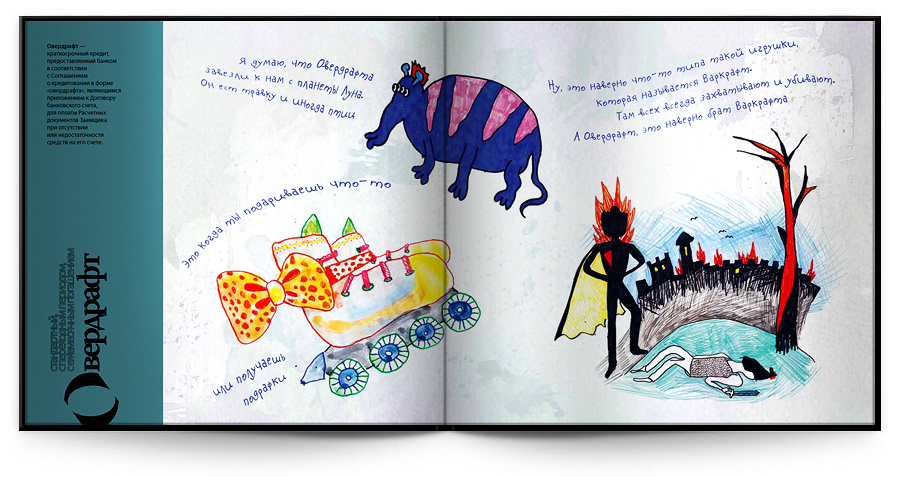 Овердрафт —
краткосрочный кредит,
предоставляемый Банком
в соответствии
с Соглашением
о кредитовании в форме
«овердрафта», являющимся
приложением к Договору
банковского счета,
для оплаты Расчетных
документов Заемщика
при отсутствии
или недостаточности
средств на его счете.
Овердрафт
стандартный,
с периодом
с ежемесячным погашением
Я думаю, что Овердрафта
завезли к нам с планеты Луна.
Он ест травку и иногда птии
это когда ты подариваешь что-то
или получаешь
подрафки
Ну, это наверно что-то типа такой игрушки,
которая называется Варкрафт.
Там всех всегда захватывают и убивают.
А Овердрафт, это наверно брат Варкрафта